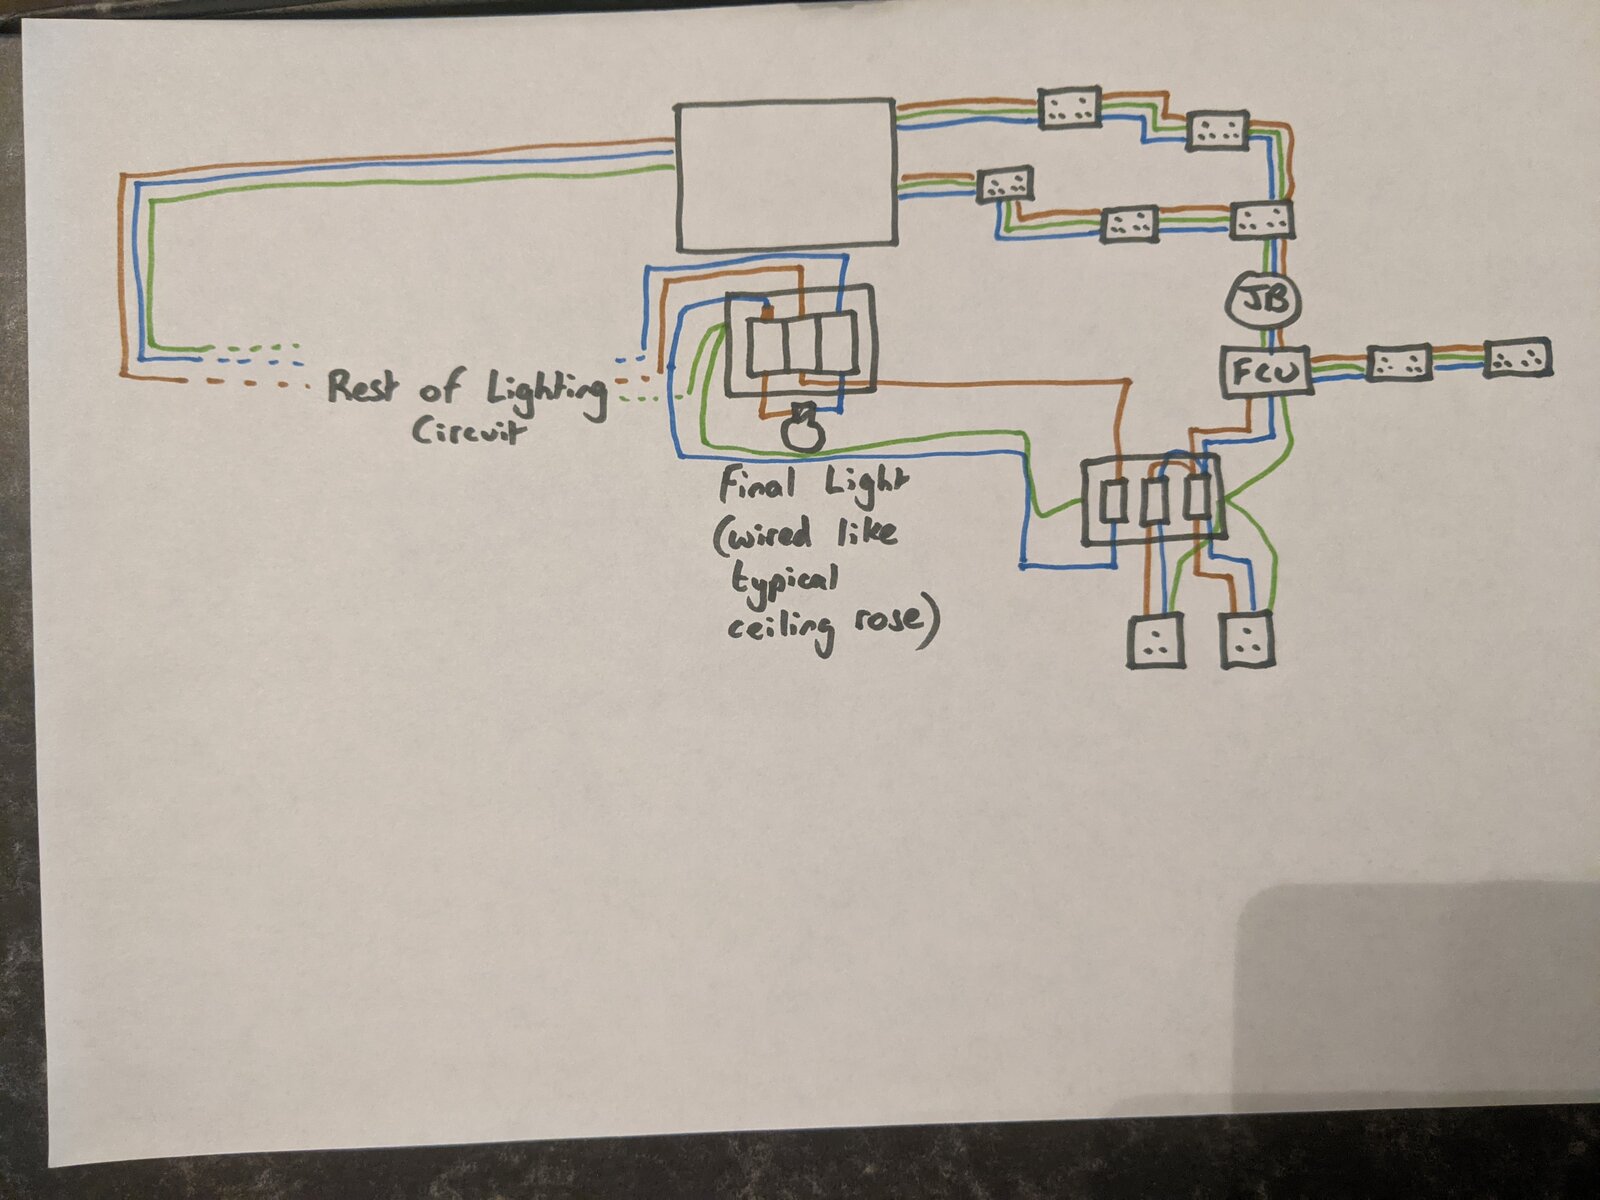 JB
FCU
Rest of Lighting
Circuit
Final Light
(wired like
typical
ceiling rose)